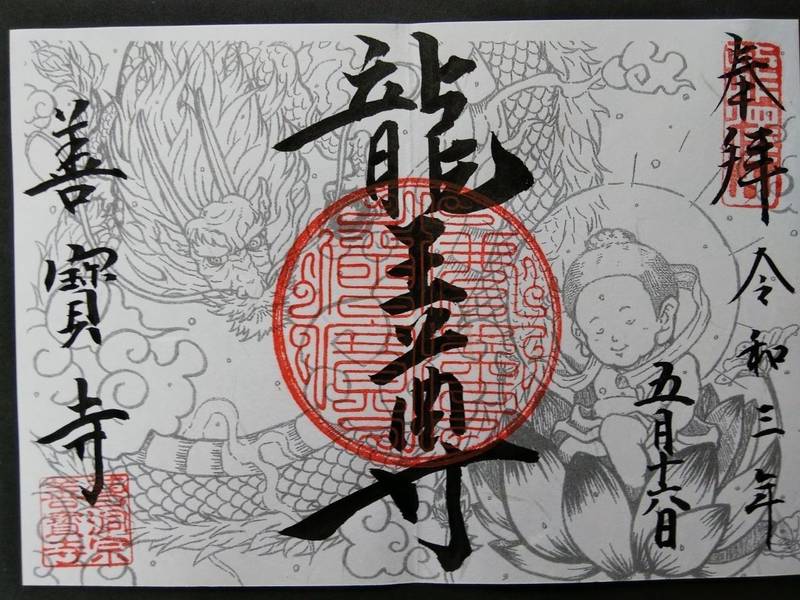 奉拝
令和三年
五月十六日
龍王尊
善寳寺
曹洞宗
善寳寺